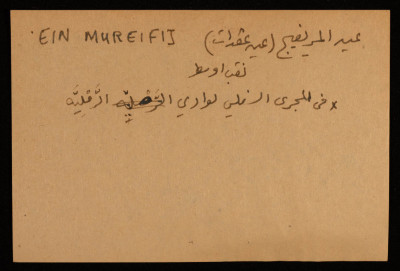 'EIN MUREIFIJ
عين المريفيج (عين عقدات)
نقب اوسط
× في المجرى السفلي لوادي الرَّمْلِيَّه